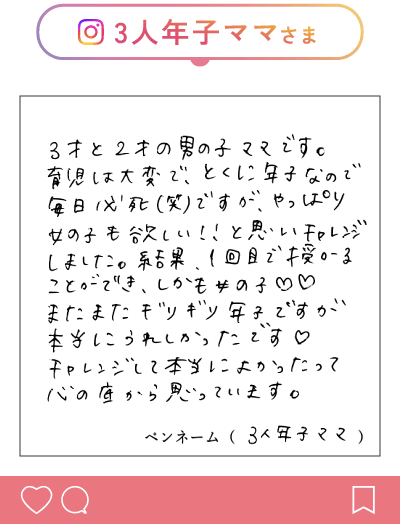 3人年子ママさま
3才と2才の男の子ママです。
育児は大変で、とくに年子なので
毎日バタバタ(笑)ですが、やっぱり
女の子も欲しい!!と思いチャレンジ
しました。結果、1回目で授かる
ことができ、しかも女の子♡♡
またまたギリギリ年子ですが
本当にうれしかったです♡
チャレンジして本当によかったって
心の底から思っています。
ペンネーム ( 3人年子ママ )